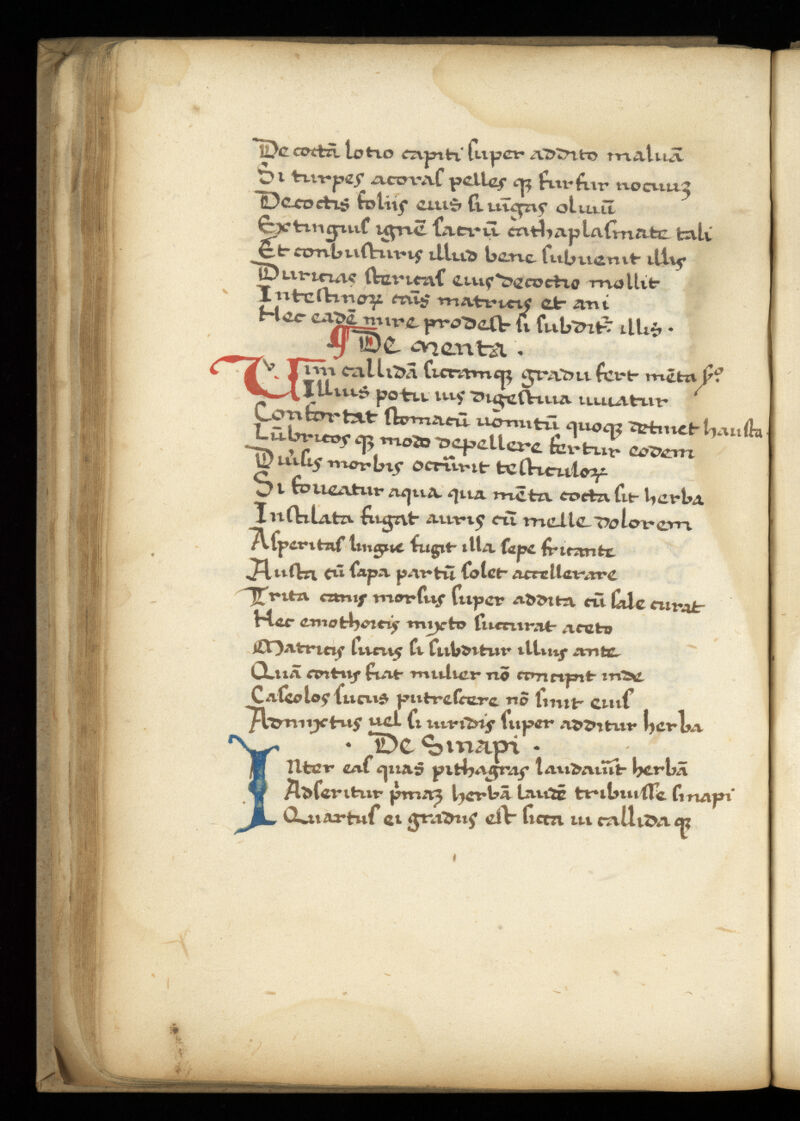 De coctā lotio capiti super addito maluā
Si turpes acoras pelles qꝫ furfur nocuuꝫ
Decoctis foliis eius si uīgas oliuū
Extinguis ignē sacrū cathaplasmate tali
Et conbusturis illud bene subuenit illis
Duricias stericas eius decoctio mollit
Intestinoꝝ matricis et ani
Hec eadē mire prodest si subdit᷑ illis .
¶ De menta .
Vim callidā siccamqꝫ gradu fert mēta
Illius potu uis digestiua iuuatur
Confortat stomacū uomitū quoqꝫ detinet hausta
Lūbricos qꝫ modo depellere fertur eodem
Diuisis morbis occurrit testiculoꝝ
Si foueatur aqua qua mēta cocta sit herba
Instilata fugat auris cū melle dolorem
Asperitas lingue fugit illa sepe fricante
Austa cū sapa partū solet accellerare
Trita canis morsus super addita cū sale curat
Hec emothoicis mixto succurat aceto
Matricis sucus si subditur illius ante
Quā coitus fiat mulier nō concipit inde
Caseolos sucus putrescere nō sinit eius
Admixtus uel si uiridis super additur herba
· De Sinapi ·
Inter eas quas pithagras laudauit herbā
Adseritur pꝛimaꝫ herbā laudē tribuisse sinapi
Quartus ei gradus est sicca ui callida qꝫ